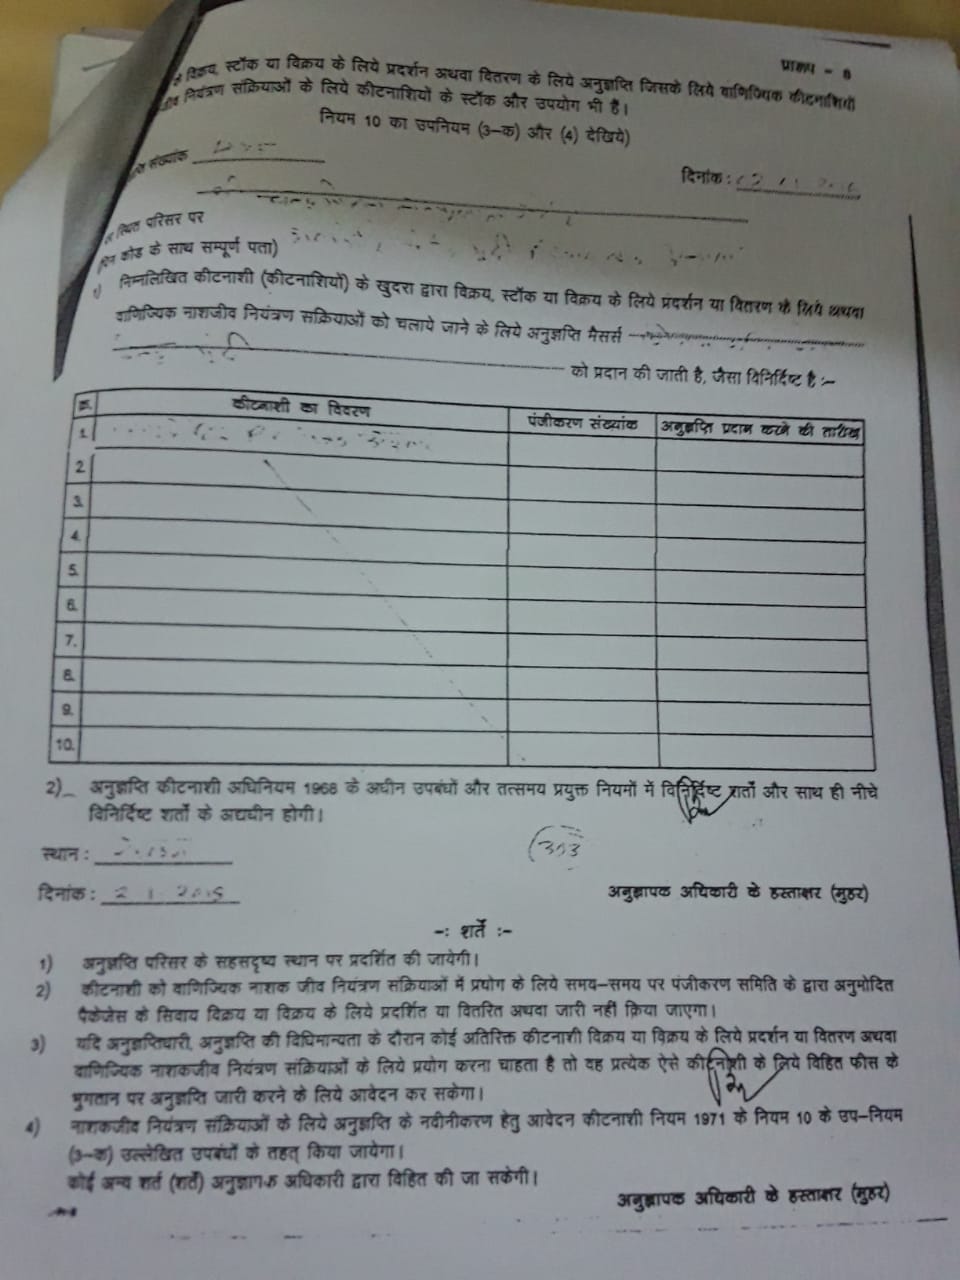 प्रारूप - 8
विक्रय, स्टॉक या विक्रय के लिये प्रदर्शन अथवा वितरण के लिये अनुज्ञप्ति जिसके लिये वाणिज्यिक कीटनाशियों
नियंत्रण संक्रियाओं के लिये कीटनाशियों के स्टॉक और उपयोग भी हैं।
नियम 10 का उपनियम (3-क) और (4) देखिये)
संख्यांक
दिनांक :
स्थित परिसर पर
कोड के साथ सम्पूर्ण पता)
निम्नलिखित कीटनाशी (कीटनाशियों) के खुदरा द्वारा विक्रय, स्टॉक या विक्रय के लिये प्रदर्शन या वितरण के लिये अथवा
वाणिज्यिक नाशजीव नियंत्रण सक्रियाओं को चलाये जाने के लिये अनुज्ञप्ति मैसर्स
को प्रदान की जाती है, जैसा विनिर्दिष्ट है :-
क्र. कीटनाशी का विवरण पंजीकरण संख्यांक अनुज्ञप्ति प्रदान करने की तारीख
1.
2
3.
4.
5.
6.
7.
8.
9.
10.
2) अनुज्ञप्ति कीटनाशी अधिनियम 1968 के अधीन उपबंधों और तत्समय प्रयुक्त नियमों में विनिर्दिष्ट शर्तों और साथ ही नीचे
विनिर्दिष्ट शर्तों के अद्यधीन होगी।
स्थान :
दिनांक :
अनुज्ञापक अधिकारी के हस्ताक्षर (मुहर)
-: शर्ते :-
1) अनुज्ञप्ति परिसर के सहसदृष्य स्थान पर प्रदर्शित की जायेगी।
2) कीटनाशी को वाणिज्यिक नाशक जीव नियंत्रण सक्रियाओं में प्रयोग के लिये समय-समय पर पंजीकरण समिति के द्वारा अनुमोदित
पैकेजेस के सिवाय विक्रय या विक्रय के लिये प्रदर्शित या वितरित अथवा जारी नहीं किया जाएगा।
3) यदि अनुज्ञप्तिधारी, अनुज्ञप्ति की विधिमान्यता के दौरान कोई अतिरिक्त कीटनाशी विक्रय या विक्रय के लिये प्रदर्शन या वितरण अथवा
वाणिज्यिक नाशकजीव नियंत्रण संक्रियाओं के लिये प्रयोग करना चाहता है तो वह प्रत्येक ऐसे कीटनाशी के लिये विहित फीस के
भुगतान पर अनुज्ञप्ति जारी करने के लिये आवेदन कर सकेगा।
4) नाशकजीव नियंत्रण संक्रियाओं के लिये अनुज्ञप्ति के नवीनीकरण हेतु आवेदन कीटनाशी नियम 1971 के नियम 10 के उप-नियम
(3-क) उल्लेखित उपबंधों के तहत् किया जायेगा।
कोई अन्य शर्त (शर्तें) अनुज्ञापक अधिकारी द्वारा विहित की जा सकेगी।
अनुज्ञापक अधिकारी के हस्ताक्षर (मुहर)